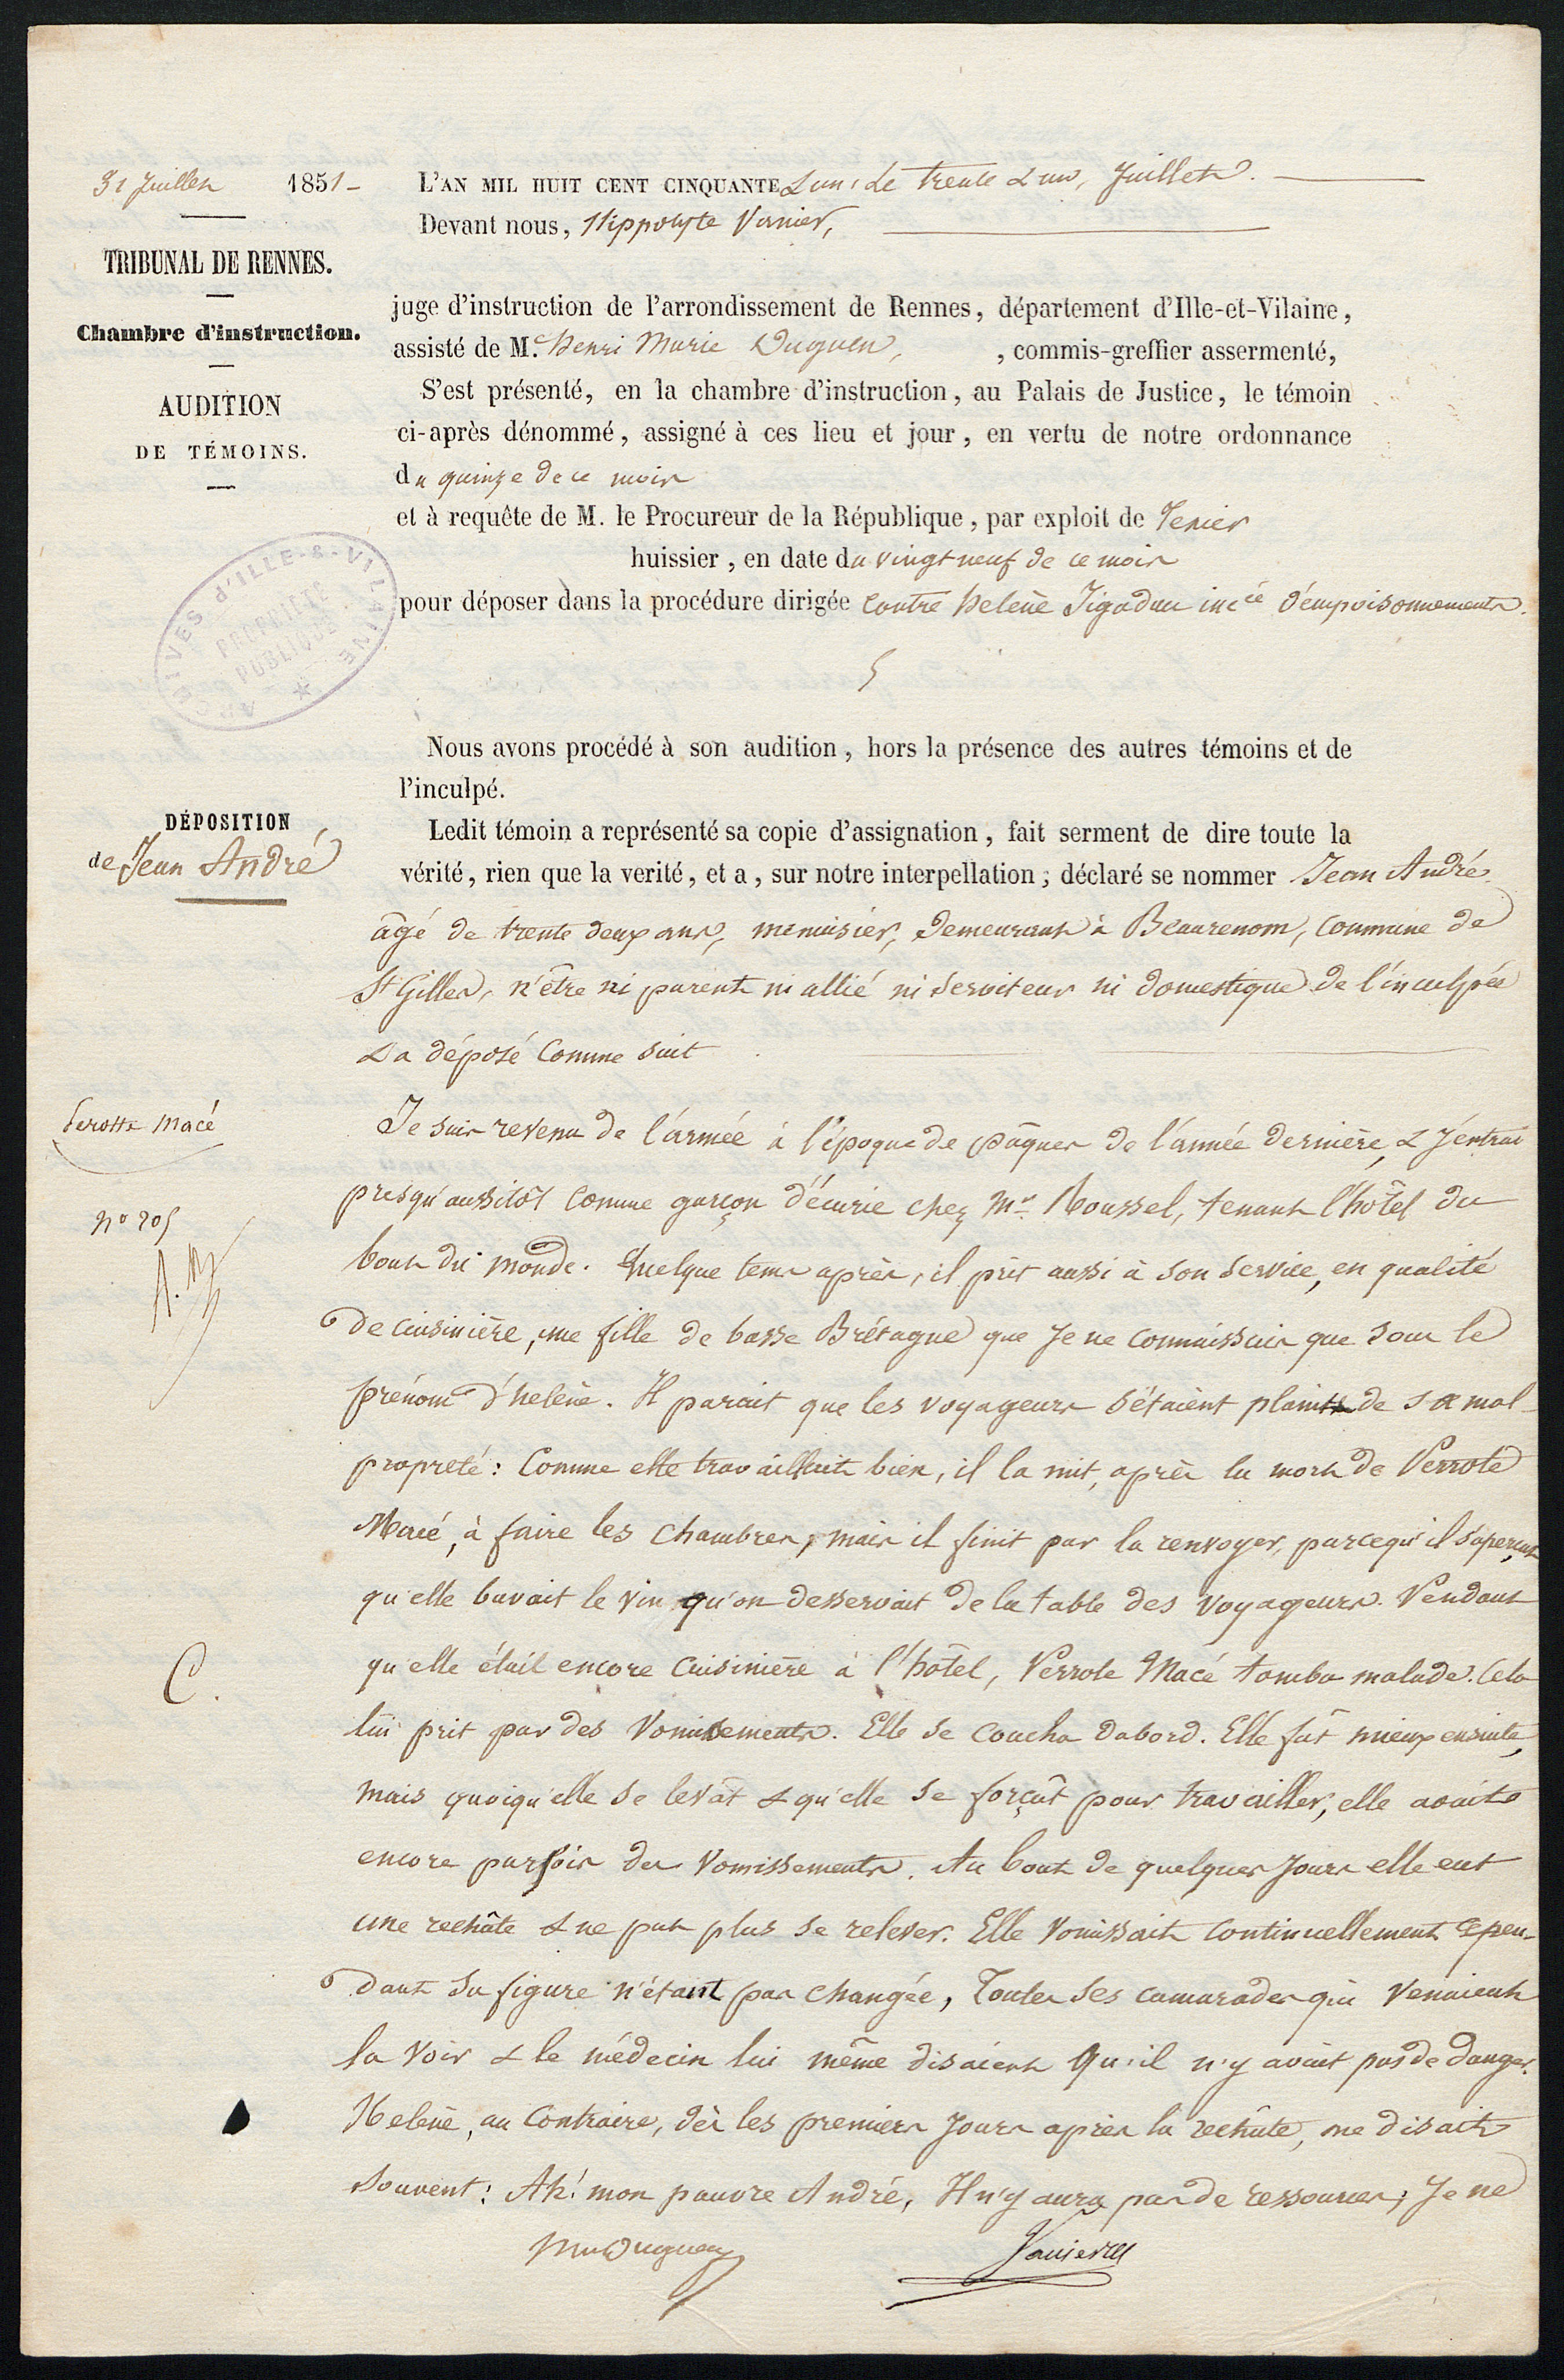 31 Juillet 1851-
TRIBUNAL DE RENNES.
Chambre d'instruction.
AUDITION
DE TÉMOINS.
ARCHIVES d'ILLE-&-VILAINE
PROPRIÉTÉ
PUBLIQUE
L'AN MIL HUIT CENT CINQUANTE & un, le trente & un, Juillet.
Devant nous, Hippolyte Vanier,
juge d'instruction de l'arrondissement de Rennes, département d'Ille-et-Vilaine,
assisté de M.e Henri Marie Duguen, , commis-greffier assermenté,
S'est présenté, en la chambre d'instruction, au Palais de Justice, le témoin
ci-après dénommé, assigné à ces lieu et jour, en vertu de notre ordonnance
du quinze de ce mois
et à requête de M. le Procureur de la République, par exploit de
huissier, en date du vingt neuf de ce mois
pour déposer dans la procédure dirigée contre Helène Jégadau incée d'empoisonnements.
Nous avons procédé à son audition, hors la présence des autres témoins et de
l'inculpé.
DÉPOSITION
de Jean André
Ledit témoin a représenté sa copie d'assignation, fait serment de dire toute la
vérité, rien que la verité, et a, sur notre interpellation; déclaré se nommer Jean André
âgé de trente deux ans, menuisier, demeurant à Beaurenom, commune de
St Gilles, n'être ni parent ni allié ni serviteur ni domestique de l'inculpée
& a déposé comme suit
Perotte Macé
Je suis revenu de l'armée à l'époque de pâques de l'année dernière, & j'entrai
presqu'aussitôt comme garçon d'écurie chez Mr Roussel, tenant l'hôtel du
no 205
bout du monde. Quelque tems après, il prit aussi à son service, en qualité
de cuisinière, une fille de basse Brétagne que Je ne connaissais que sous le
prénom d'helène. Il parait que les voyageurs s'étaient plaints de sa mal-
propreté: Comme elle travaillait bien, il la mit, après la mort de Perrote
Macé, à faire les chambres, mais il finit par la renvoyer, parcequ'il s'aperçut
qu'elle buvait le vin qu'on desservait de la table des voyageurs. Pendant
C.
qu'elle était encore cuisinière à l'hôtel, Perrote Macé tomba malade. Cela
lui prit par des Vomissements. Elle se coucha dabord. Elle fût mieux ensuite,
mais quoiqu'elle se levât & qu'elle se forçât pour travailler, elle avait
encore parfois des vomissements. Au bout de quelques jours elle eut
une rechûte & ne put plus se relever. Elle vomissait continuellement cepen-
dant sa figure n'étant pas changée, Toutes ses camarades qui venaient
la voir & le médecin lui même disaient qu'il n'y avait pas de danger.
Helène, au Contraire, dès les premiers jours après la rechûte, me disait
souvent: Ah! mon pauvre André, Il n'y aura pas de ressources; Je ne
Duguen
Vanier